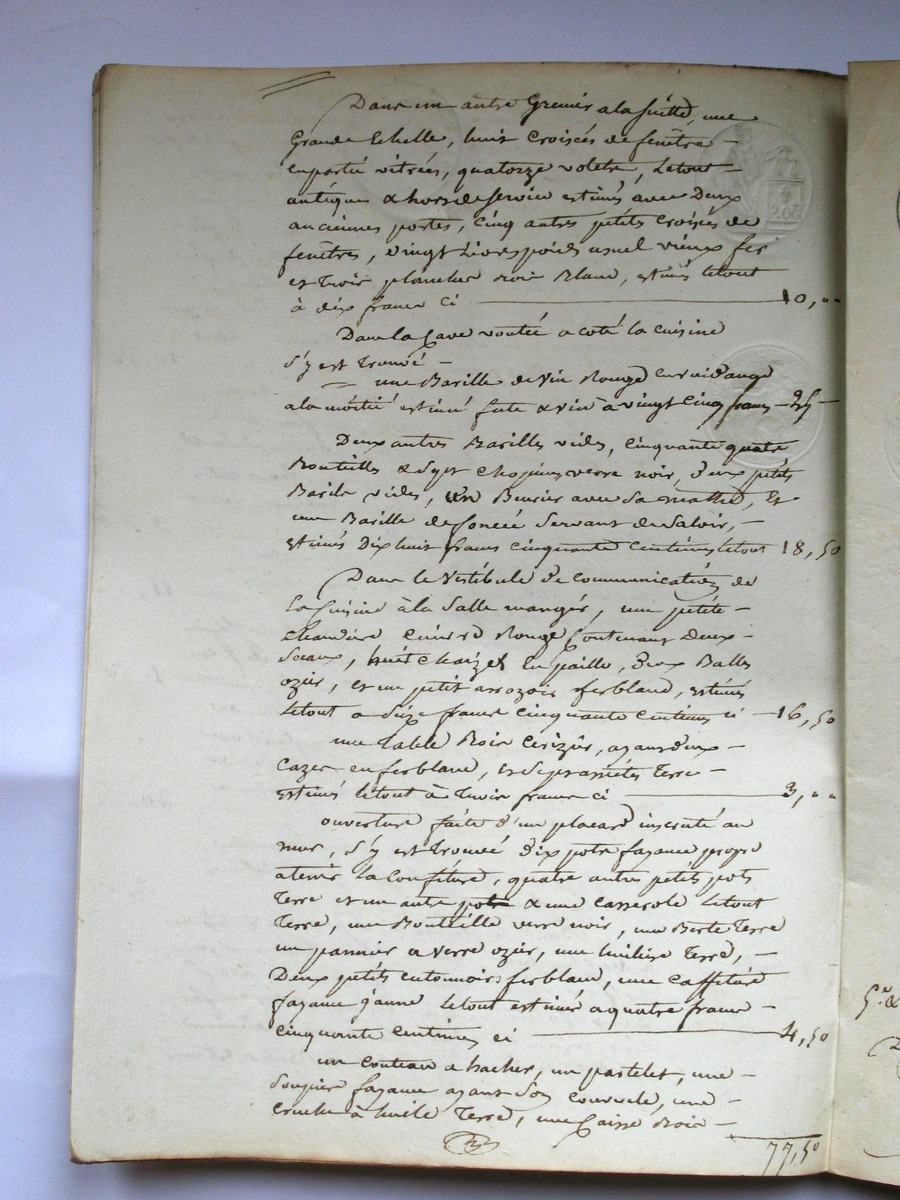 Dans un autre Grenier a la suitte, une
Grande Echelle, huit Croisées de fenêtre
en partie vitrées, quatorze volets, Letout
antiques & hors de Service estimés avec Deux
anciennes portes, Cinq autres petits Croisées de
fenêtres, Vingt Livres poids usuel vieux fer
et Trois planches Bois Blanc, estimés letout
à dix francs Ci 10,"
Dans la Cave voutée a coté la cuisine
s'y est trouvé
une Barille de vin Rouge en vuidange
a la moitié estimé fute & vin à vingt cinq francs 25
Deux autres Barilles vides, cinquante quatre
Bouteilles & Sept Chopines verre noir, deux petits
Barils vides, un Beurier avec sa , Et
une Barille défoncée Servant de Saloir,
estimés Dix huit francs cinquante Centimes letout 18,50
Dans le Vestibule de communication de
La Cuisine à la Salle manger, une petite
chaudière cuivre Rouge Contenant Deux
Seaux, huit Chaizes En paille, deux Balles
ozier, et un petit arrozoir ferblanc, estimés
Letout a Seize francs cinquante Centimes ci 16,50
une table Bois Cerizier, ayant deux
Cazes en ferblanc, et Sept assiettes Terre
estimés letout à Trois francs Ci 3,"
ouverture faite d'un placard incruté au
mur, s'y est Trouvé dix pots fayance propre
a tenir la Confiture, quatre autres petits pots
Terre et un autre pots & une Casserole Letout
Terre, une Bouteille verre noir, une Berte Terre
un pannier a verre ozier, une huilière Terre,
Deux petits entonnoirs ferblanc, une Caffetiére
fayance jaune Letout estimés a quatre francs
cinquante Centimes ci 4,50
un Couteau a hacher, un , une
Soupier fayance ayant Son Couvercle, une
Cruche à huile Terre, une Caisse Bois
77,50